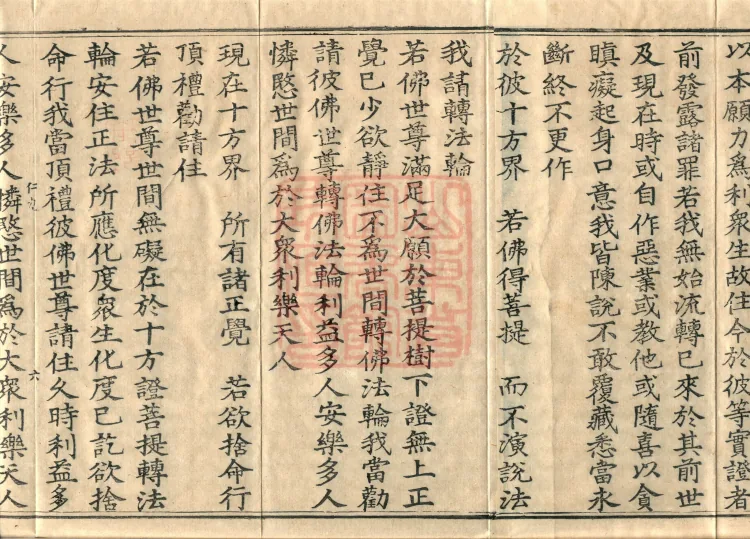 以本願力爲利衆生故住今於彼等實證者
前發露諸罪若我無始流轉已來於其前世
及現在時或自作惡業或教他或隨喜以貪
瞋癡起身口意我皆陳說不敢覆藏悉當永
斷終不更作
於彼十方界　若佛得菩提　而不演說法
我請轉法輪
若佛世尊滿足大願於菩提樹下證無上正
覺已少欲靜住不爲世間轉佛法輪我當勸
請彼佛世尊轉佛法輪利益多人安樂多人
憐愍世間爲於大衆利樂天人
現在十方界　所有諸正覺　若欲捨命行
頂禮勸請住
若佛世尊世間無礙在於十方證菩提轉法
輪安住正法所應化度衆生化度已訖欲捨
命行我當頂禮彼佛世尊請住久時利益多
六
人安樂多人憐愍世間爲於大衆利樂天人